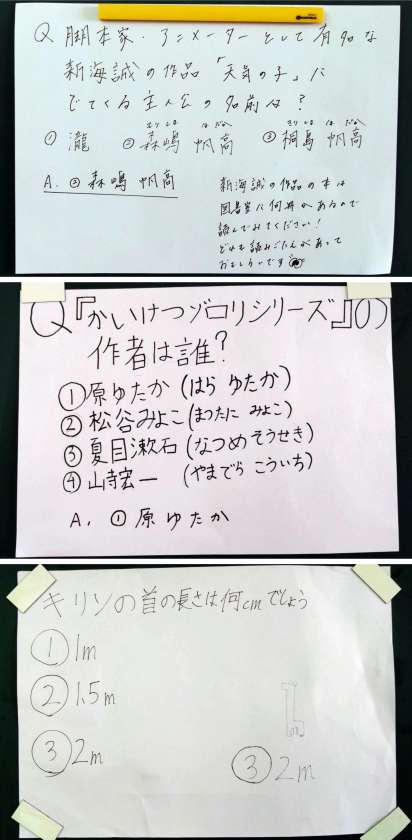 Q 脚本家・アニメーターとして有名な
新海誠の作品「天気の子」に
でてくる主人公の名前は?
①瀧 ②森嶋 帆高 ③桐島 帆高
もりしま ほだか きりしま ほだか
A. ② 森嶋 帆高
新海誠の作品の本は
図書室に何冊かあるので
読んでみてください!
どれも読みごたえがあって
おもしろいです
Q『かいけつゾロリシリーズ』の
作者は誰?
①原ゆたか(はら ゆたか)
②松谷みよこ(まつたに みよこ)
③夏目漱石(なつめ そうせき)
④山寺宏一(やまでら こういち)
A. ①原 ゆたか
キリンの首の長さは何cmでしょう
①1m
②1.5m
③2m
③2m